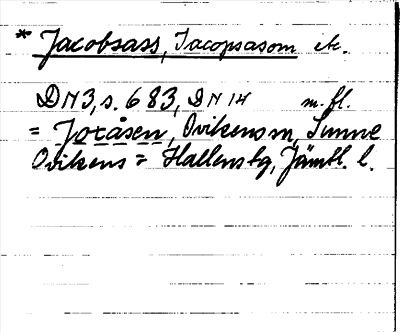 * Jacobsass, Jacopsasom etc.
DN3, s. 683, DN 14 m. fl.
= Joxåsen, Ovikens sn, Sunne
Ovikens = Hallens tg, Jämtl. l.